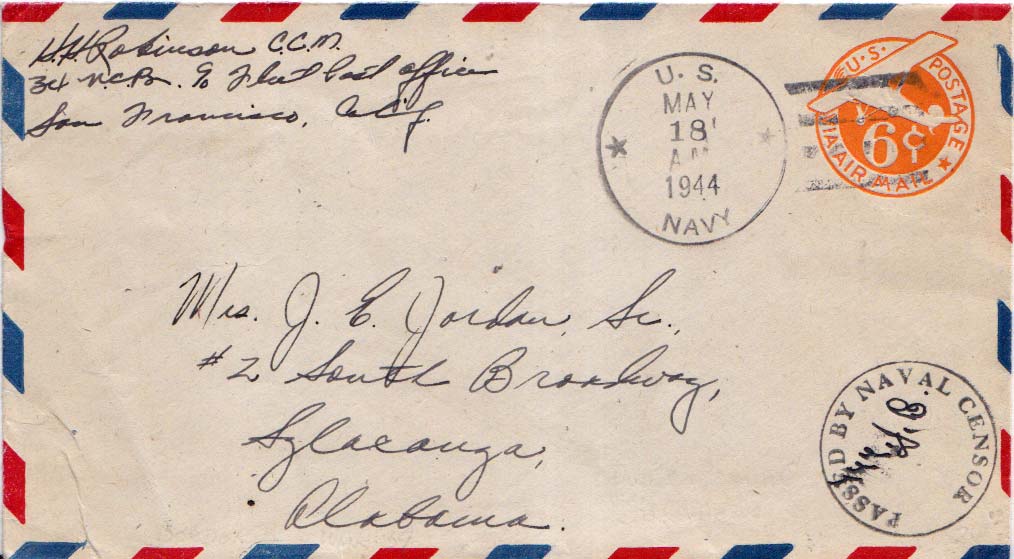 H.H. Robinson C.C.M.
34 N.C.B. % Fleet Post Office
San Francisco, Calif.
U. S.
MAY
18
A.M.
1944
NAVY
U.S. POSTAGE
VIA AIR MAIL
6¢
Mrs. J. E. Jordan, Sr.,
#2 South Broadway,
Sylacauga,
Alabama.
PASSED BY NAVAL CENSOR